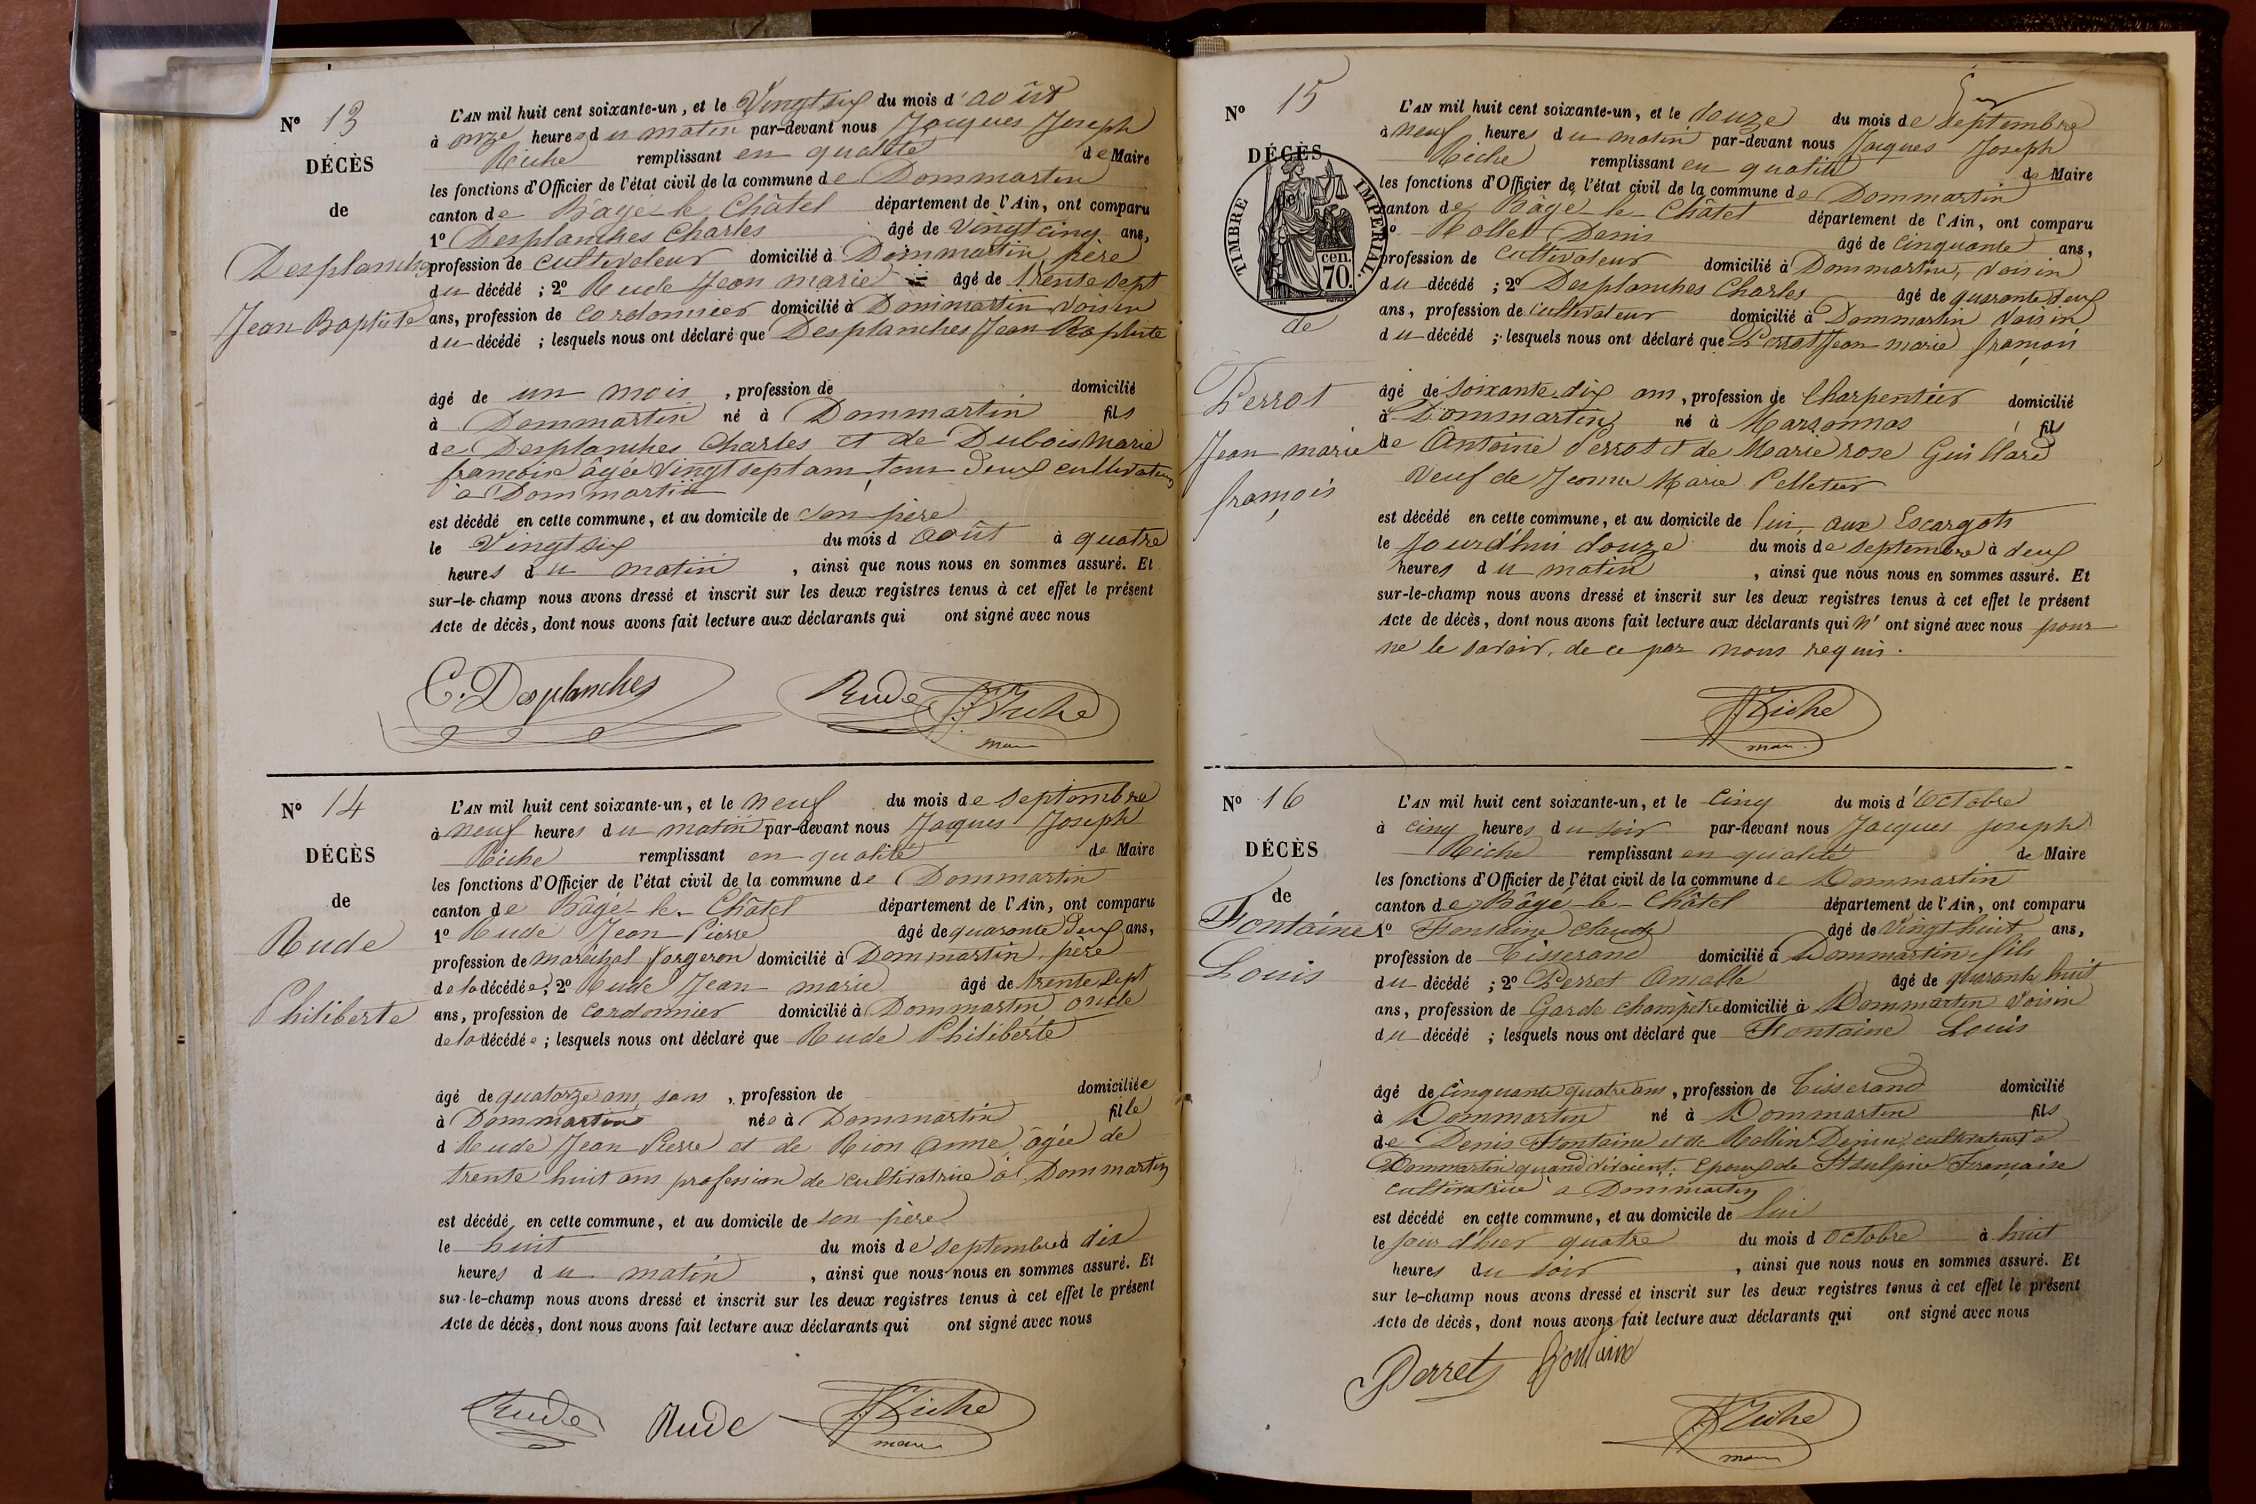 N° 13
DÉCÈS
de
Desplanches
Jean Baptiste
L'AN mil huit cent soixante-un, et le Vingt six du mois d'août
à onze heures du matin par-devant nous Jacques Joseph
Riche remplissant en qualité de Maire
les fonctions d'Officier de l'état civil de la commune de Dommartin
canton de Bâgé-le-Châtel département de l'Ain, ont comparu
1° Desplanches Charles âgé de Vingt cinq ans,
profession de cultivateur domicilié à Dommartin, père
du décédé ; 2° Rude Jean marie âgé de trente sept
ans, profession de cordonnier domicilié à Dommartin voisin
du décédé ; lesquels nous ont déclaré que Desplanches Jean Baptiste
âgé de un mois , profession de domicilié
à Dommartin né à Dommartin fils
de Desplanches Charles et de Dubois Marie
françoise âgée Vingt sept ans, tous deux cultivateurs
à Dommartin
est décédé en cette commune, et au domicile de son père
le Vingt six du mois d août à quatre
heures du matin , ainsi que nous nous en sommes assuré. Et
sur-le-champ nous avons dressé et inscrit sur les deux registres tenus à cet effet le présent
Acte de décès, dont nous avons fait lecture aux déclarants qui ont signé avec nous
C. Desplanches Rude JJ Riche
maire
N° 14
DÉCÈS
de
Rude
Philiberte
L'AN mil huit cent soixante-un, et le neuf du mois de septembre
à neuf heures du matin par-devant nous Jacques Joseph
Riche remplissant en qualité de Maire
les fonctions d'Officier de l'état civil de la commune de Dommartin
canton de Bâgé-le-Châtel département de l'Ain, ont comparu
1° Rude Jean Pierre âgé de quarante deux ans,
profession de maréchal forgeron domicilié à Dommartin, père
de la décédée ; 2° Rude Jean marie âgé de trente sept
ans, profession de cordonnier domicilié à Dommartin oncle
de la décédée ; lesquels nous ont déclaré que Rude Philiberte
âgé de quatorze ans sans , profession de domiciliée
à Dommartin née à Dommartin fille
d Rude Jean Pierre et de Rion Anne, âgée de
trente huit ans profession de cultivatrice à Dommartin
est décédé en cette commune, et au domicile de son père
le huit du mois de septembre à dix
heures du matin , ainsi que nous nous en sommes assuré. Et
sur-le-champ nous avons dressé et inscrit sur les deux registres tenus à cet effet le présent
Acte de décès, dont nous avons fait lecture aux déclarants qui ont signé avec nous
Rude Rude JJ Riche
maire
N° 15
DÉCÈS
de
TIMBRE IMPÉRIAL
70 cen.
de
Perrot
Jean marie
françois
L'AN mil huit cent soixante-un, et le douze du mois de septembre
à neuf heures du matin par-devant nous Jacques Joseph
Riche remplissant en qualité de Maire
les fonctions d'Officier de l'état civil de la commune de Dommartin
canton de Bâgé-le-Châtel département de l'Ain, ont comparu
1° Rollet Denis âgé de cinquante ans,
profession de cultivateur domicilié à Dommartin, voisin
du décédé ; 2° Desplanches Charles âgé de quarante deux
ans, profession de cultivateur domicilié à Dommartin voisin
du décédé ; lesquels nous ont déclaré que Perrot Jean marie françois
âgé de soixante dix ans , profession de Charpentier domicilié
à Dommartin né à Marsonnas fils
de Antoine Perrot et de Marie rose Guillard
Veuf de Jeanne Marie Pelletier
est décédé en cette commune, et au domicile de lui, aux Escargots
le jourd'hui douze du mois de septembre à deux
heures du matin , ainsi que nous nous en sommes assuré. Et
sur-le-champ nous avons dressé et inscrit sur les deux registres tenus à cet effet le présent
Acte de décès, dont nous avons fait lecture aux déclarants qui n'ont signé avec nous pour
ne le savoir, de ce par nous requis.
JJ Riche
maire
N° 16
DÉCÈS
de
Fontaine
Louis
L'AN mil huit cent soixante-un, et le Cinq du mois d'Octobre
à cinq heures du soir par-devant nous Jacques Joseph
Riche remplissant en qualité de Maire
les fonctions d'Officier de l'état civil de la commune de Dommartin
canton de Bâgé-le-Châtel département de l'Ain, ont comparu
1° Fontaine Claude âgé de Vingt huit ans,
profession de Tisserand domicilié à Dommartin fils
du décédé ; 2° Perret Amable âgé de quarante huit
ans, profession de Garde champêtre domicilié à Dommartin voisin
du décédé ; lesquels nous ont déclaré que Fontaine Louis
âgé de Cinquante quatre ans , profession de Tisserand domicilié
à Dommartin né à Dommartin fils
de Denis Fontaine et de Mollin Denise, cultivateurs à
Dommartin quand vivaient ; Epoux de St Sulpice Françoise
cultivatrice à Dommartin
est décédé en cette commune, et au domicile de lui
le jour d'hier quatre du mois d Octobre à huit
heures du soir , ainsi que nous nous en sommes assuré. Et
sur le-champ nous avons dressé et inscrit sur les deux registres tenus à cet effet le présent
Acte de décès, dont nous avons fait lecture aux déclarants qui ont signé avec nous
Perret Fontaine
JJ Riche
maire